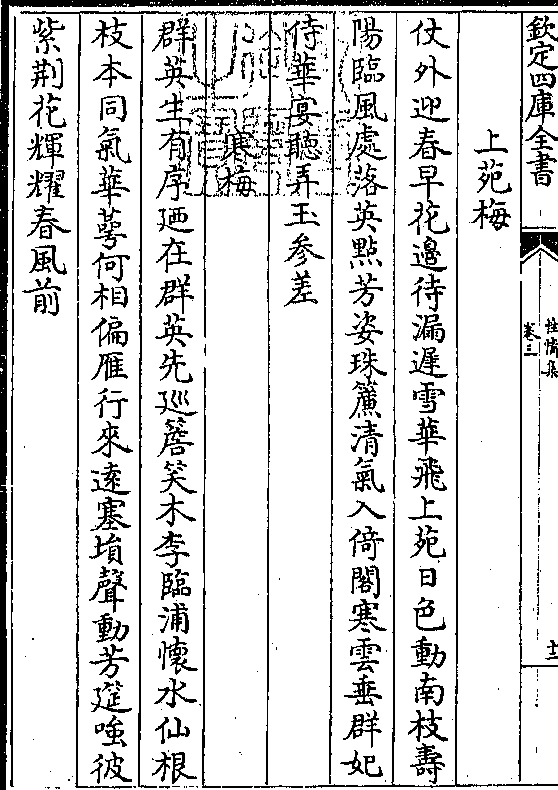 欽定四庫全書
性情集
卷三
十二
上苑梅
仗外迎春早花邊待漏遲雪華飛上苑日色動南枝壽
陽臨風處落英㸃芳姿珠簾清氣入倚閣寒雲垂群妃
侍華宴聽弄玉參差
寒梅
群英生有序廼在群英先廵簷笑木李臨浦懷水仙根
枝本同氣華萼何相偏雁行來逺塞塤聲動芳筵嗤彼
紫荆花輝耀春風前